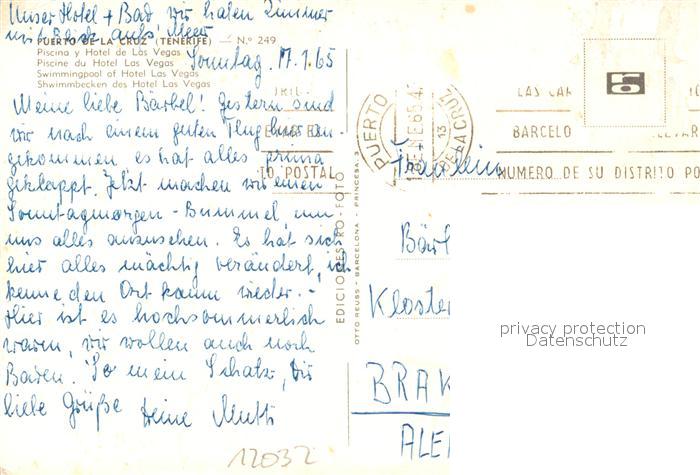 Unser Hotel + Bad wir haben Zimmer
mit Blick aufs Meer
PUERTO DE LA CRUZ (TENERIFE) — N.º 249
Piscina y Hotel de Las Vegas
Piscine du Hotel Las Vegas
Swimmingpool of Hotel Las Vegas
Shwimmbecken des Hotel Las Vegas
Sonntag. 17.1.65
Meine liebe Bärbel! Gestern sind
wir nach einem guten Flug hier an-
gekommen es hat alles prima
geklappt. Jetzt machen wir einen
Sonntagmorgen-Bummel um
uns alles anzusehen. Es hat sich
hier alles mächtig verändert, ich
kenne den Ort kaum wieder.-
Hier ist es hochsommerlich
warm, wir wollen auch noch
Baden. So mein Schatz, Dir
liebe Grüße Deine Mutti
12032
EDICIONES RO-FOTO
OTTO REUSS - BARCELONA - PRINCESA, 3
PUERTO
DE LA CRUZ
13
LAS CAR
BARCELO
NUMERO DE SU DISTRITO PO
TO POSTAL
Fräulein
Bärb
Kloster
BRAK
ALE
privacy protection
Datenschutz